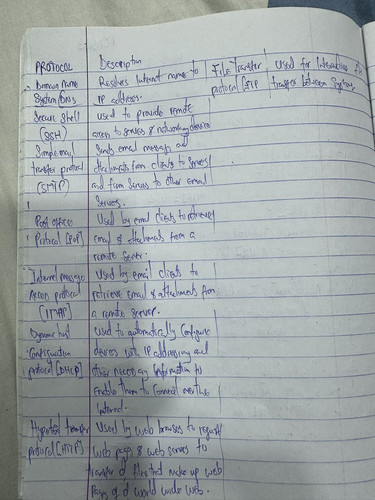 PROTOCOL Description
Domain name Resolves Internet names to
System (DNS) IP address.
Secure Shell used to provide remote
(SSH) access to servers & networking devices
Simple mail Sends email messages and
transfer protocol attachments from clients to servers
(SMTP) and from servers to other email
servers.
Post office Used by email clients to retrieve
Protocol [POP] email & attachments from a
remote server.
Internet message Used by email clients to
Access protocol retrieve email & attachments from
[IMAP] a remote server.
Dynamic host used to automatically configure
Configuration devices with IP addressing and
protocol [DHCP] other necessary information to
Enable them to connect over the
Internet.
Hypertext transfer Used by web browsers to request
protocol [HTTP] Web pages & web servers to
transfer of files that make up web
Pages of d world wide web.
File Transfer Used for Interactive File
protocol [FTP transfer between Systems